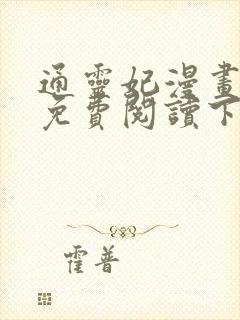 通靈妃漫畫
免費閱讀下
霍普